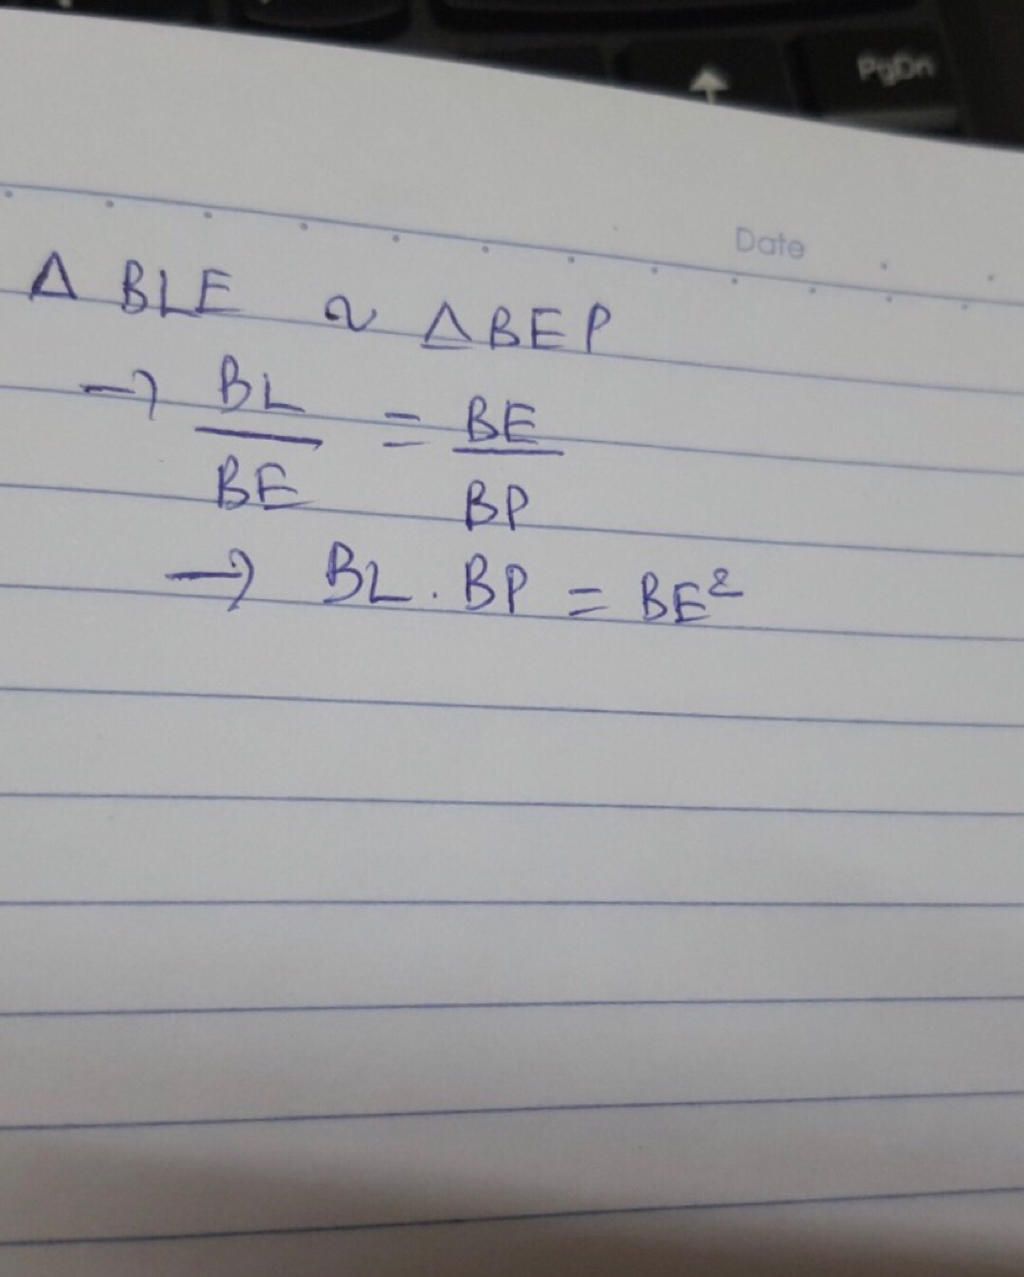 PgDn
Date
Δ BLE ~ ΔBEP
→ BL/BE = BE/BP
→ BL . BP = BE²